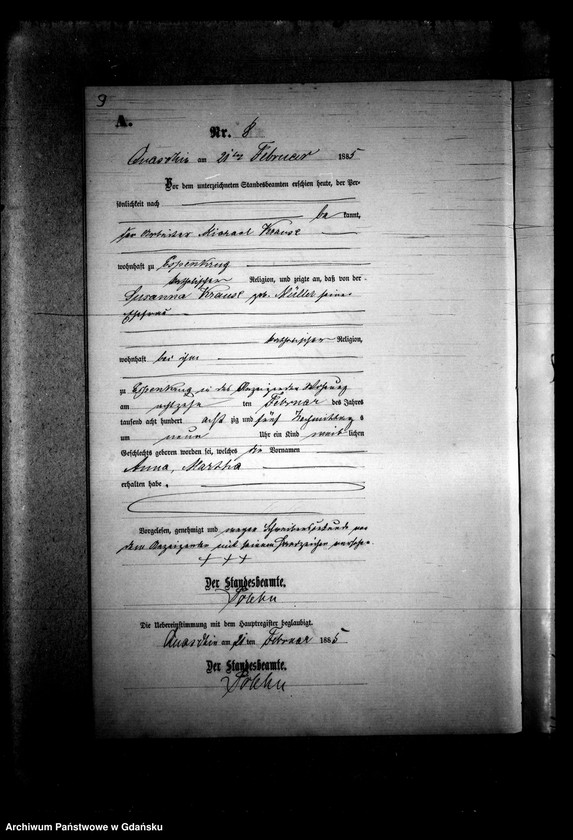 9
A.
Nr. 8
Quaschin am 21ten Februar 1885
Vor dem unterzeichneten Standesbeamten erschien heute, der Per-
sönlichkeit nach
be kannt,
der Arbeiter Michael Krause
wohnhaft zu Espenkrug
katholischer Religion, und zeigte an, daß von der
Susanna Krause geb. Müller seiner
Ehefrau
katholischer Religion,
wohnhaft bei ihm
zu Espenkrug in des Anzeigenden Wohnung
am achtzehn ten Februar des Jahres
tausend acht hundert acht zig und fünf Nachmittags
um neun Uhr ein Kind weib lichen
Geschlechts geboren worden sei, welches die Vornamen
Anna, Martha
erhalten habe.
Vorgelesen, genehmigt und wegen Schreibensunkunde von
dem Anzeigenden mit seinem Handzeichen versehen.
+ + +
Der Standesbeamte.
Die Uebereinstimmung mit dem Hauptregister beglaubigt.
Quaschin am 21 ten Februar 1885
Der Standesbeamte.
Archiwum Państwowe w Gdańsku